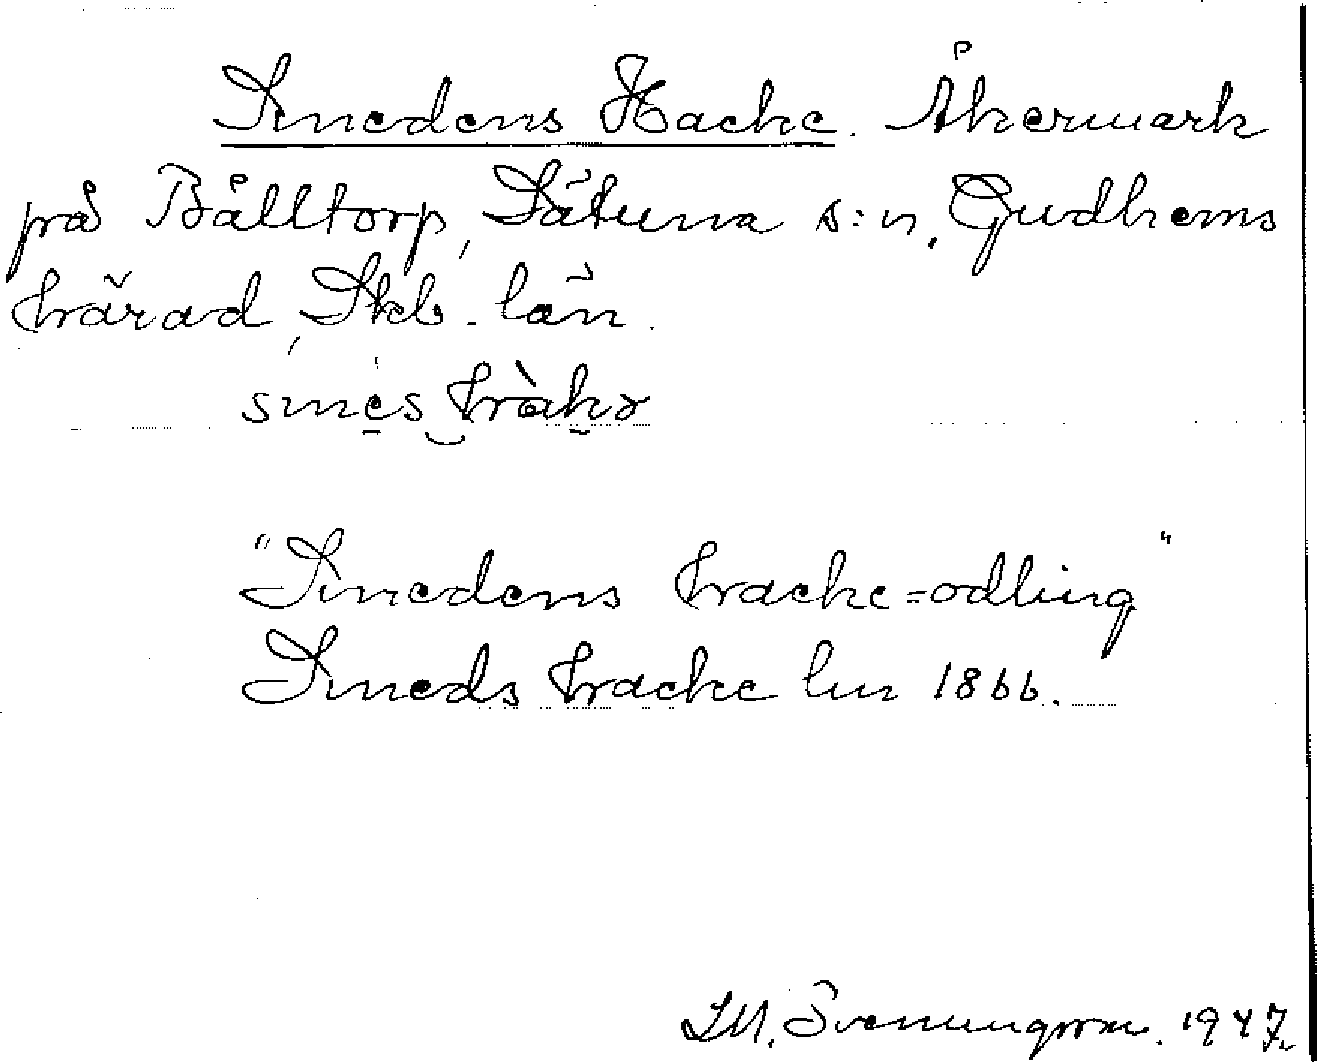 Smedens Hacke. Åkermark
på Bålltorp, Sätuna s:n, Gudhems
härad, Skb. län.
smes hàkə
"Smedens hacke=odling"
Smeds hacke lm 1866.
1947.